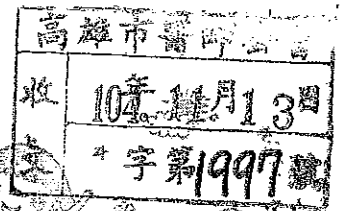 高雄市醫師公會
收 104年11月13日
文 字第1997號